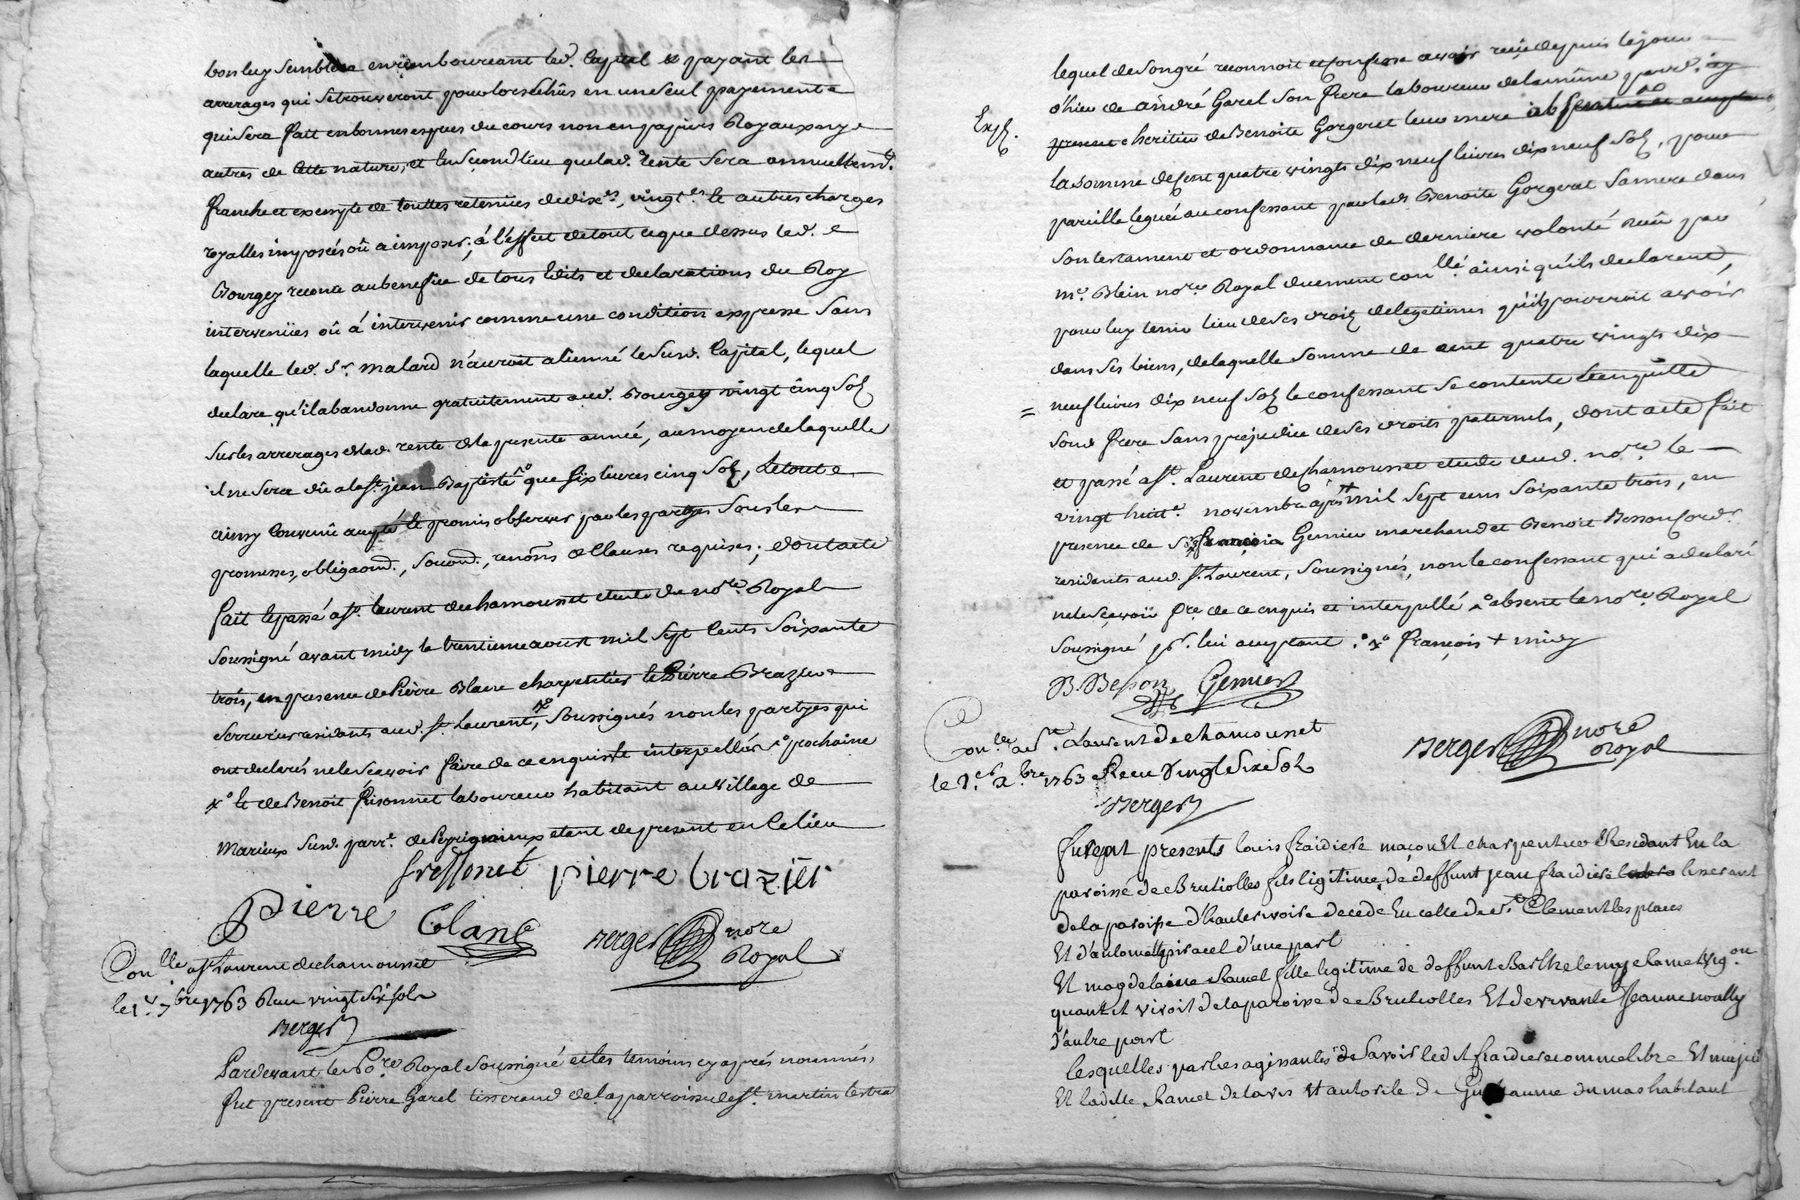 bon luy semblera en remboursant led. Capital et payant les
arrerages qui se trouveront pour lors dehûs en un seul payement
qui sera fait en bonnes espues du cours non en papiers Royaux ny
autres de cette nature, et en second lieu que lad. rente sera annuellemt.
franche et exempte de touttes retenues de dixes, vingtes et autres charges
royalles imposés où a imposer; à l'effet de tout ce que dessus led.
Bourgey renonce au benefice de tous Edits et declarations du Roy
intervenües où à intervenir comme une condition expresse sans
laquelle led. Sr. malard n'auroit alienné le susd. Capital, lequel
declare qu'il abandonne gratuitement aud. Bourgey vingt cinq sols
sur les arrerages de lad. rente de la presente année, au moyen de laquelle
il ne sera dû a la st. jean Baptiste que six livres cinq sols, le tout
ainsy convenû accepté et promis observer par les partyes sous les
promesses, obligaons., soumons., renons. et clauses requises; dont acte
fait et passé a st. laurent de chamousset etude du nore. Royal
soussigné avant midy le trentieme aoust mil sept cents soixante
trois, en presence de Pierre Blanc charpentier et Pierre Brazier
serrurier residants aud. st. Laurent, soussignés non les partyes qui
ont declarés ne le sçavoir faire de ce enquis et interpellés prochaine
xo et de Benoit frisonnet laboureur habitant au village de
marieux susd. parr. de etant de present en ce lieu
frissonet pierre brazier
Pierre blanc Berger nore Royal
Conlle a st. Laurent de chamousset
le 1er 7bre 1763 Reçu vingt six sols
Berger
Pardevant le No.re Royal soussigné et les temoins cy aprés nommés,
fut present Pierre Garel tisserand de la parroisse de st. martin lestra
lequel de son gré reconnoit et confesse avoir reçu depuis le jour
d'hier de andré Garel son frere laboureur de la même parr. icy
Exp. present heritier de Benoite Gorgeret leur mere absent
la somme de cent quatre vingts dix neuf livres dix neuf sols, pour
pareille leguée au confessant par lad. Benoite Gorgeret sa mere dans
son testament et ordonnance de derniere volonté reçu par
me. Blein nore. Royal duement conllé ainsi qu'ils declarent,
pour luy tenir lieu de ses droits de legitimes qu'il pourroit avoir
dans ses biens, de laquelle somme de cent quatre vingts dix
= neuf livres dix neuf sols le confessant se contente et en quitte
sond. frere sans prejudice de ses droits paternels, dont acte fait
et passé a st. Laurent de chamousset etude dud. nore. le
vingt huite. novembre aprés mil sept cens soixante trois, en
presence de Sr. françois Gernier marchand et Benoit Besson cordr.
residents aud. st. Laurent, soussignés, non le confessant qui a declaré
ne le sçavoir fre. de ce enquis et interpellé absent le nore. Royal
soussigné pr. lui acceptant. xo françois + midy
B. Besson Gernier
Berger nore Royal
Conlle a st. Laurent de chamousset
le 1er xbre 1763 Reçu Vingt Six Sols
Berger
furent presents louis fraidiere maçon Et charpentier Residant En la
paroisse de Brulliolles fils legitime de deffunt jean fraidiere tisserant
de la paroisse d'hauterivoire decedé En celle de st. Clement les places
Et d'autorité d'une part
Et magdelaine Ramel fille legitime de deffunt Barthelemy Ramel vigon
quand il vivoit de la paroisse de Brulliolles Et de vivante Jeanne noally
d'autre part
lesquelles parties agissantes sçavoir ledit fraidiere comme libre Et majeur
Et ladite Ramel de l'avis Et autorité de Guillaume dumas habitant